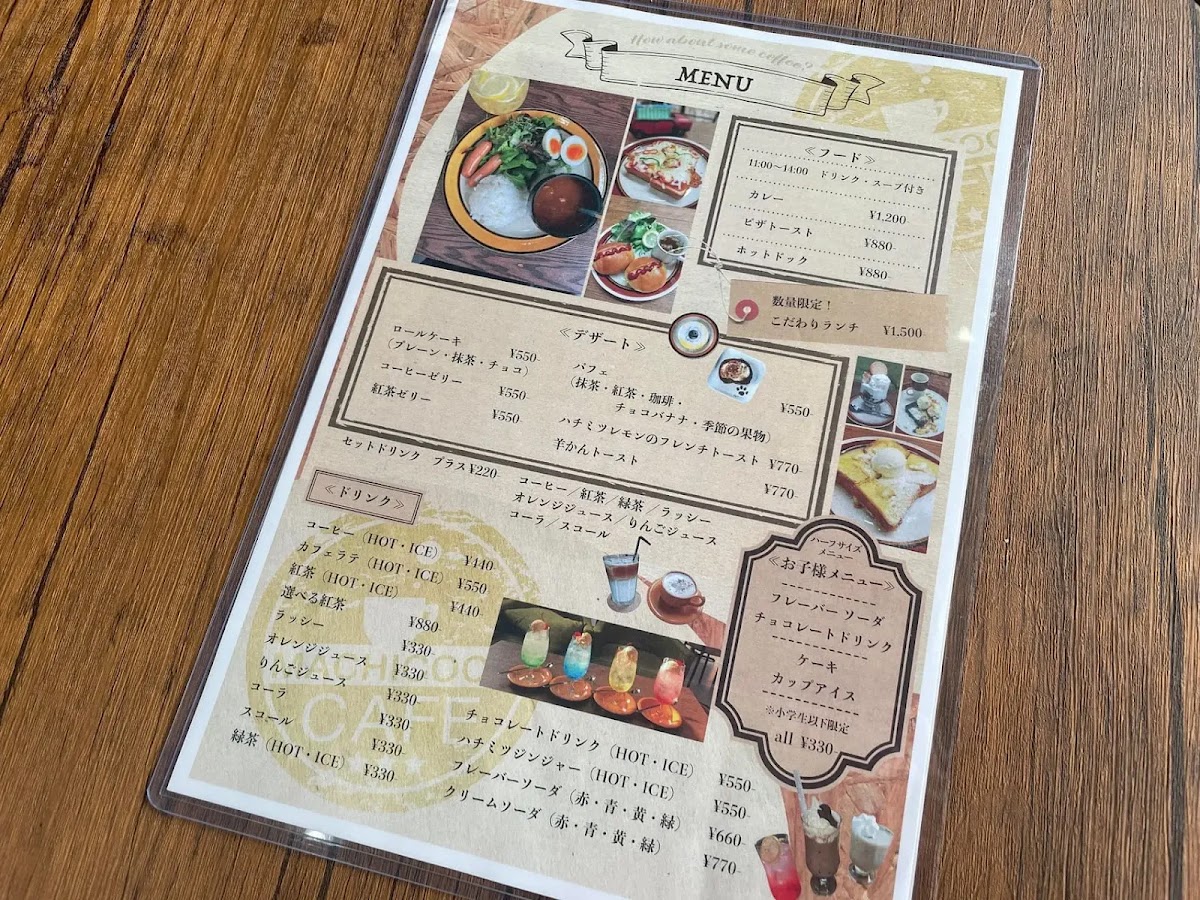 How about some coffee?
MENU
≪フード≫
11:00〜14:00 ドリンク・スープ付き
カレー ¥1,200-
ピザトースト ¥880-
ホットドック ¥880-
数量限定！
こだわりランチ ¥1,500-
≪デザート≫
ロールケーキ ¥550-
（プレーン・抹茶・チョコ）
コーヒーゼリー ¥550-
紅茶ゼリー ¥550-
パフェ
（抹茶・紅茶・珈琲・ ¥550-
チョコバナナ・季節の果物）
ハチミツレモンのフレンチトースト ¥770-
羊かんトースト ¥770-
セットドリンク プラス¥220-
コーヒー／紅茶／緑茶／ラッシー
オレンジジュース／りんごジュース
コーラ／スコール
≪ドリンク≫
コーヒー（HOT・ICE） ¥440-
カフェラテ（HOT・ICE） ¥550-
紅茶（HOT・ICE） ¥440-
選べる紅茶 ¥880-
ラッシー ¥330-
オレンジジュース ¥330-
りんごジュース ¥330-
コーラ ¥330-
スコール ¥330-
緑茶（HOT・ICE） ¥330-
CAFE
チョコレートドリンク（HOT・ICE） ¥550-
ハチミツジンジャー（HOT・ICE） ¥550-
フレーバーソーダ（赤・青・黄・緑） ¥660-
クリームソーダ（赤・青・黄・緑） ¥770-
ハーフサイズ
メニュー
≪お子様メニュー≫
フレーバーソーダ
チョコレートドリンク
ケーキ
カップアイス
※小学生以下限定
all ¥330-